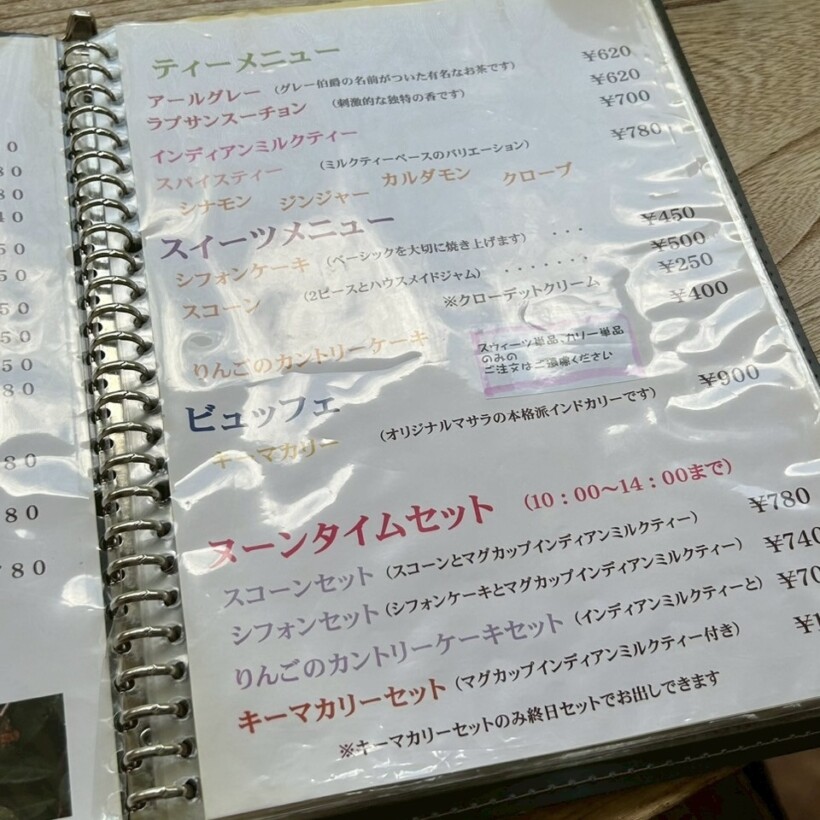 ティーメニュー
アールグレー (グレー伯爵の名前がついた有名なお茶です) ¥620
ラプサンスーチョン (刺激的な独特の香です) ¥620
インディアンミルクティー ¥700
スパイスティー (ミルクティーベースのバリエーション) ¥780
シナモン ジンジャー カルダモン クローブ
スイーツメニュー
シフォンケーキ (ベーシックを大切に焼き上げます) ・・・ ¥450
スコーン (2ピースとハウスメイドジャム) ・・・・・・・ ¥500
※クローデットクリーム ¥250
りんごのカントリーケーキ ¥400
スウィーツ単品、カリー単品
のみの
ご注文はご遠慮ください
ビュッフェ
キーマカリー (オリジナルマサラの本格派インドカリーです) ¥900
ヌーンタイムセット (10:00〜14:00まで)
スコーンセット (スコーンとマグカップインディアンミルクティー) ¥780
シフォンセット (シフォンケーキとマグカップインディアンミルクティー) ¥740
りんごのカントリーケーキセット (インディアンミルクティーと) ¥70
キーマカリーセット (マグカップインディアンミルクティー付き) ¥1
※キーマカリーセットのみ終日セットでお出しできます